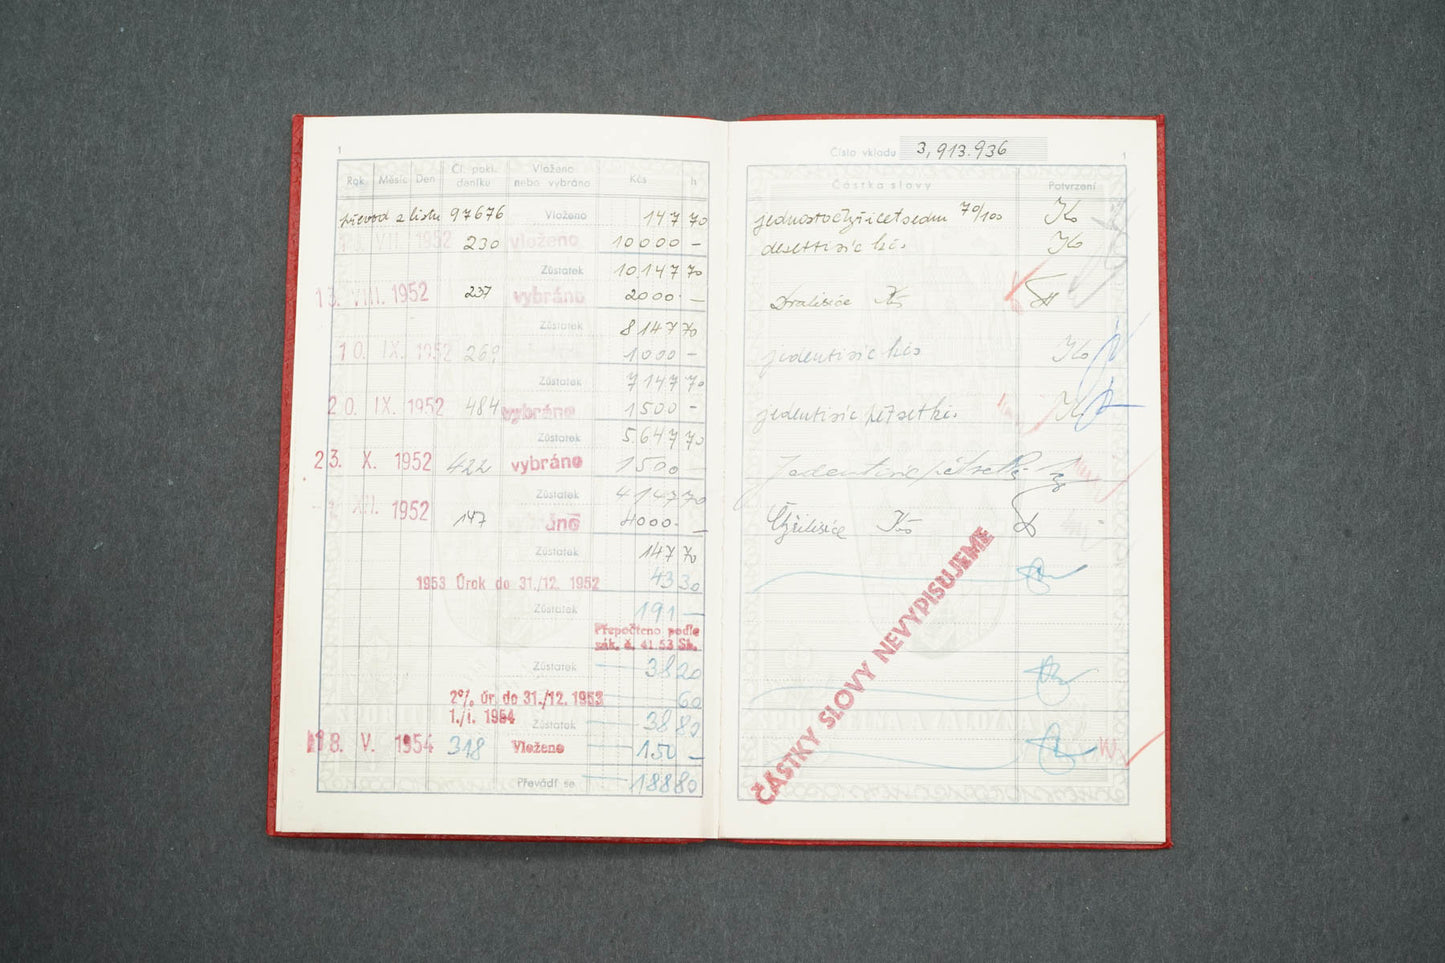 1
Rok Měsíc Den Čl. pokl. deníku Vloženo nebo vybráno Kčs h
převod z listu 97676 Vloženo 147 70
VII. 1952 230 vloženo 10000 –
Zůstatek 10.147 70
13. VIII. 1952 237 vybráno 2000 –
Zůstatek 8147 70
10. IX. 1952 269 1000 –
Zůstatek 7147 70
20. IX. 1952 484 vybráno 1500 –
Zůstatek 5.647 70
23. X. 1952 422 vybráno 1500 –
Zůstatek 4147 70
XII. 1952 147 áno 4000 –
Zůstatek 147 70
1953 Úrok do 31./12. 1952 43 30
Zůstatek 191 –
Přepočteno podle
zák. č. 41.53 Sb.
Zůstatek 38 20
2% úr. do 31./12. 1953 60
1./1. 1954 Zůstatek 38 80
18. V. 1954 318 Vloženo 150 –
Převádí se 188 80
Číslo vkladu 3,913.936
1
Částka slovy Potvrzení
jednostočtyřicetsedm 70/100 Ko
desettisíc kčs Ko
Dvatisíce Kčs
jedentisíc kčs Ko
jedentisíc pětset kčs
Jedentisíc pětset
Čtyřitisíce Kčs
ČÁSTKY SLOVY NEVYPISUJEME